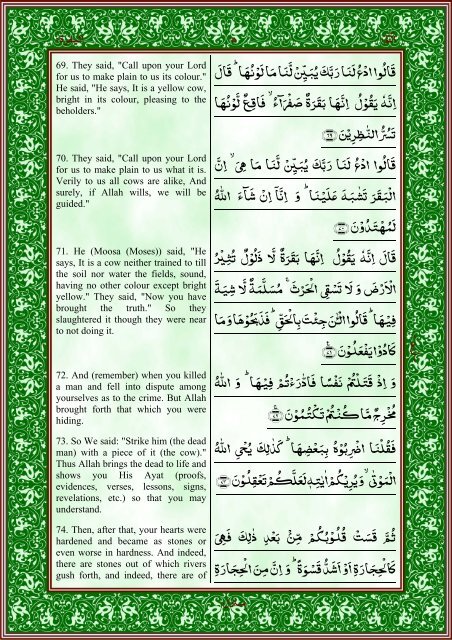 69. They said, "Call upon your Lord
for us to make plain to us its colour."
He said, "He says, It is a yellow cow,
bright in its colour, pleasing to the
beholders."
قَالُوا ادْعُ لَنَا رَبَّكَ يُبَيِّنْ لَّنَا مَا لَوْنُهَا ؕ قَالَ
اِنَّهٗ يَقُوْلُ اِنَّهَا بَقَرَةٌ صَفْرَآءُ ۙ فَاقِعٌ لَّوْنُهَا
تَسُرُّ النّٰظِرِيْنَ ﴿۶۹﴾
70. They said, "Call upon your Lord
for us to make plain to us what it is.
Verily to us all cows are alike, And
surely, if Allah wills, we will be
guided."
قَالُوا ادْعُ لَنَا رَبَّكَ يُبَيِّنْ لَّنَا مَا هِىَ ۙ اِنَّ
الْبَقَرَ تَشٰبَهَ عَلَيْنَا ؕ وَ اِنَّاۤ اِنْ شَآءَ اللّٰهُ
لَمُهْتَدُوْنَ ﴿۷۰﴾
71. He (Moosa (Moses)) said, "He
says, It is a cow neither trained to till
the soil nor water the fields, sound,
having no other colour except bright
yellow." They said, "Now you have
brought the truth." So they
slaughtered it though they were near
to not doing it.
قَالَ اِنَّهٗ يَقُوْلُ اِنَّهَا بَقَرَةٌ لَّا ذَلُوْلٌ تُثِيْرُ
الْاَرْضَ وَ لَا تَسْقِى الْحَرْثَ ۚ مُسَلَّمَةٌ لَّا شِيَةَ
فِيْهَا ؕ قَالُوا الْـٰٔنَ جِئْتَ بِالْحَقِّ ؕ فَذَبَحُوْهَا وَ مَا
كَادُوْا يَفْعَلُوْنَ ﴿۷۱﴾
72. And (remember) when you killed
a man and fell into dispute among
yourselves as to the crime. But Allah
brought forth that which you were
hiding.
وَ اِذْ قَتَلْتُمْ نَفْسًا فَادّٰرَءْتُمْ فِيْهَا ؕ وَ اللّٰهُ
مُخْرِجٌ مَّا كُنْتُمْ تَكْتُمُوْنَ ﴿۷۲﴾
73. So We said: "Strike him (the dead
man) with a piece of it (the cow)."
Thus Allah brings the dead to life and
shows you His Ayat (proofs,
evidences, verses, lessons, signs,
revelations, etc.) so that you may
understand.
فَقُلْنَا اضْرِبُوْهُ بِبَعْضِهَا ؕ كَذٰلِكَ يُحْىِ اللّٰهُ
الْمَوْتٰى ۙ وَ يُرِيْكُمْ اٰيٰتِهٖ لَعَلَّكُمْ تَعْقِلُوْنَ ﴿۷۳﴾
74. Then, after that, your hearts were
hardened and became as stones or
even worse in hardness. And indeed,
there are stones out of which rivers
gush forth, and indeed, there are of
ثُمَّ قَسَتْ قُلُوْبُكُمْ مِّنْۢ بَعْدِ ذٰلِكَ فَهِىَ
كَالْحِجَارَةِ اَوْ اَشَدُّ قَسْوَةً ؕ وَ اِنَّ مِنَ الْحِجَارَةِ